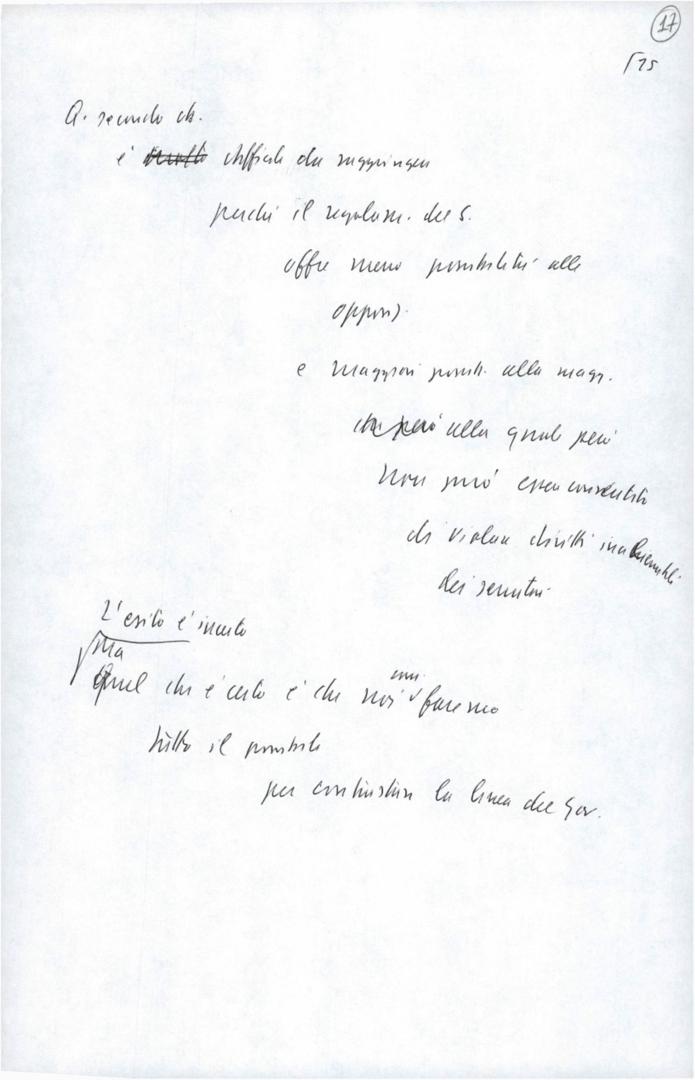 17
175
Q. secondo ob.
è molto difficile da raggiungere
perché il regolam. del S.
offre meno possibilità alle
oppos).
e maggiori possib. alla magg.
che però alla quale però
non può esser consentito
di violare diritti inalienabili
dei senatori
L'esito è incerto
Ma
Quel che è certo è che noi faremo
tutto il possibile
per contrastare la linea del Gov.